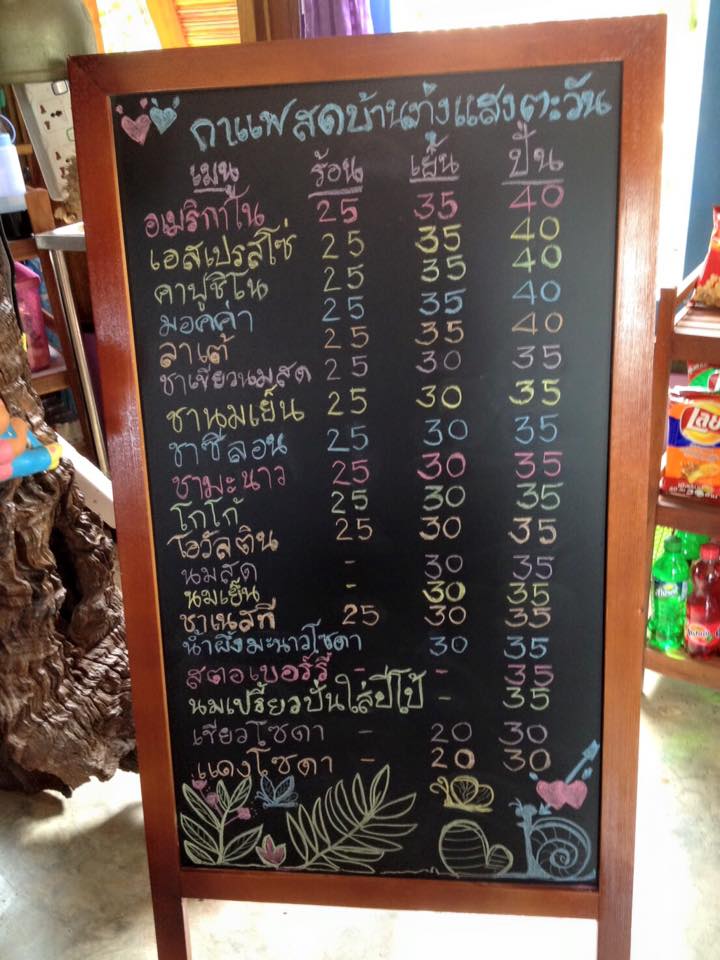 กาแฟสดบ้านทุ่งแสงตะวัน
เมนู ร้อน เย็น ปั่น
อเมริกาโน 25 35 40
เอสเปรสโซ่ 25 35 40
คาปูชิโน 25 35 40
มอคค่า 25 35 40
ลาเต้ 25 35 40
ชาเขียวนมสด 25 30 35
ชานมเย็น 25 30 35
ชาซีลอน 25 30 35
ชามะนาว 25 30 35
โกโก้ 25 30 35
โอวัลติน 25 30 35
นมสด - 30 35
นมเย็น - 30 35
ชาเนสที 25 30 35
น้ำผึ้งมะนาวโซดา 30 35
สตอเบอร์รี่ - - 35
นมเปรี้ยวปั่นใส่ปีโป้ - 35
เขียวโซดา - 20 30
แดงโซดา - 20 30
เลย์